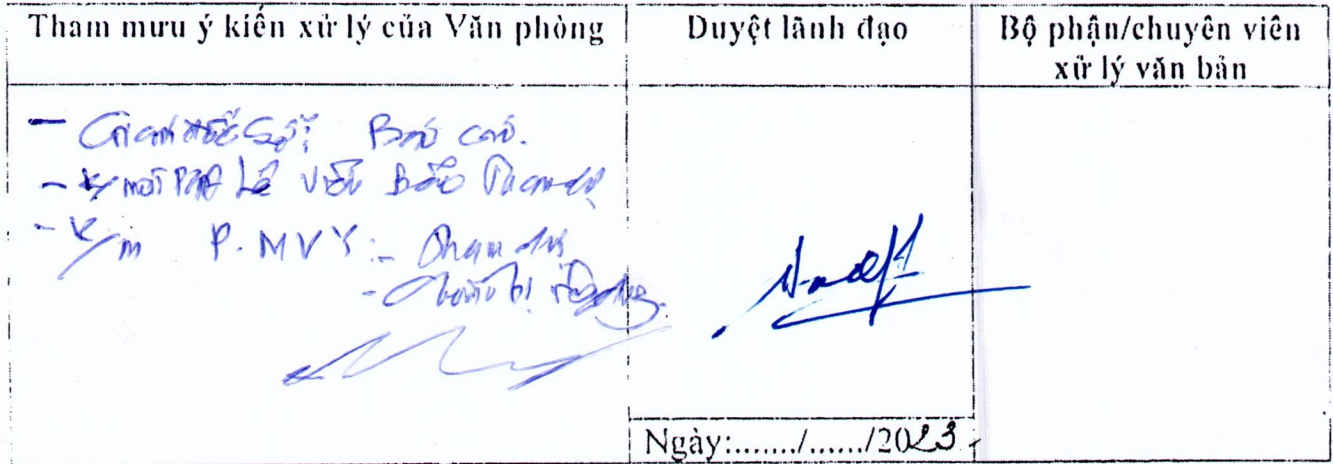 Tham mưu ý kiến xử lý của Văn phòng
Duyệt lãnh đạo
Bộ phận/chuyên viên
xử lý văn bản
- Giám đốc Sở: Báo cáo.
- K/mời Lê Viết Bảo tham dự
- K/m P. MVY: - Tham dự
- Chuẩn bị
Ngày:......./....../2023